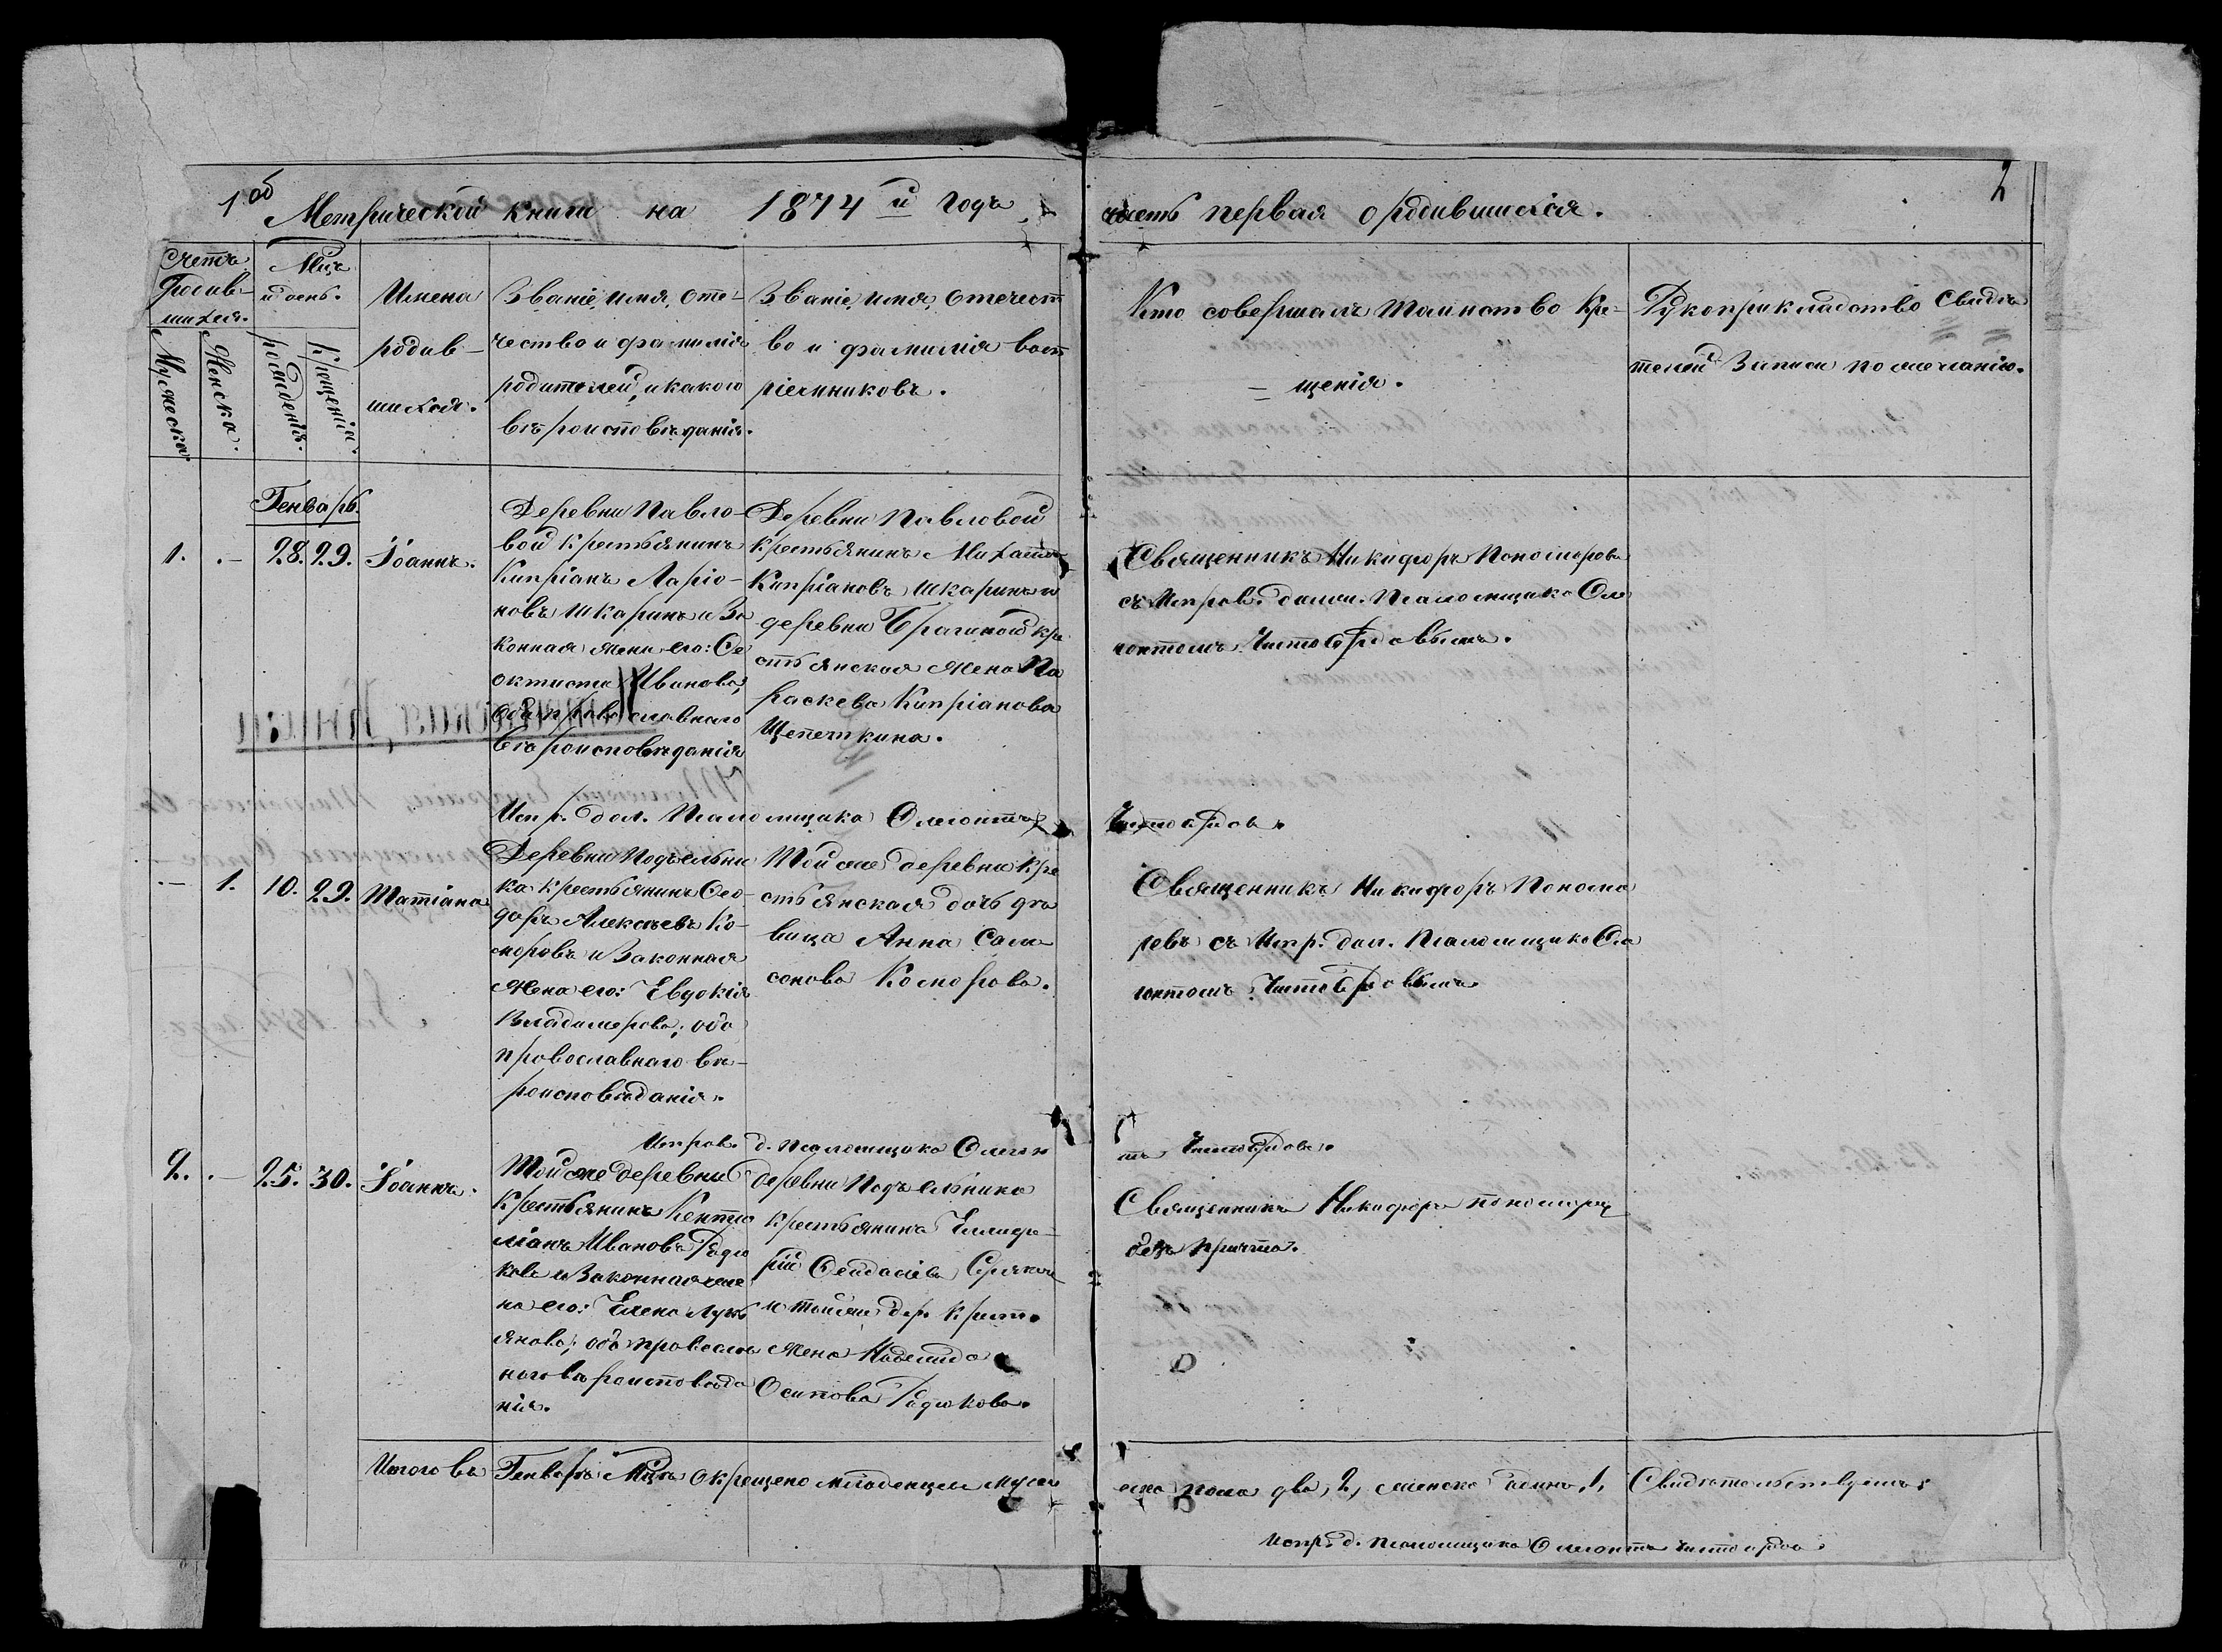 1 об
Метрической книги на 1874 й годъ,
часть первая о родившихся.
2
Счетъ родив-шихся.
Мужеска.
Женска.
Мцъ и день.
рожденія.
Крещенія.
Имена
родив-
шихся.
Званіе, имя, оте-
чество и фамилія
родителей, и какого
вѣроисповѣданія.
Званіе, имя, отечест
во и фамилія вост
ріемниковъ.
Кто совершалъ таинство кре-
щенія.
Рукоприкладство свидѣ
телей записи по желанію.
Генварь.
1. .— 28. 29. Іоаннъ.
Деревни Павло-
вой крестьянинъ
Кипріанъ Ларіо-
новъ Шкаринъ и за
конная жена его: Ѳе
октиста Иванова,
оба православнаго
вѣроисповѣданія
Деревни Павловой
крестьянинъ
Кипріановъ Шкаринъ и
деревни Брагиной кре
стьянская жена Па
раскева Кипріанова
Щепеткина.
Священникъ Никифоръ Пономаревъ
съ Исправ. долж. Псаломщика Ол
Испр. дол. Псаломщика
.— 1. 10. 29. Татіана
Деревни Подъельни
ка крестьянинъ Ѳео-
доръ Алексѣевъ Ко-
маровъ и законная
жена его: Евдокія
Владимерова; оба
православнаго вѣ-
роисповѣданія.
Той же деревни кре
стьянская дочь дѣ
вица Анна Сам
сонова Комарова.
Священникъ Никифоръ Понома
ревъ съ Испр. дол. Псаломщика
Исправ. д. Псаломщика
2. .— 25. 30. Іоаннъ.
Той же деревни
крестьянинъ
Ивановъ Радю
ковъ и законная же
на его: Елена Лукь
янова; оба правосла
наго вѣроисповѣда
нія.
деревни Подъельника
крестьянинъ
и той же дер. крест.
жена Надежда
Осипова Радюкова.
Священникъ Никифоръ Пономаревъ
безъ причта.
Итого въ Генварѣ Мцѣ окрещено младенцевъ муже
ска пола два, 2, женска одинъ, 1,
Свидѣтельствуемъ:
Испр. д. Псаломщика